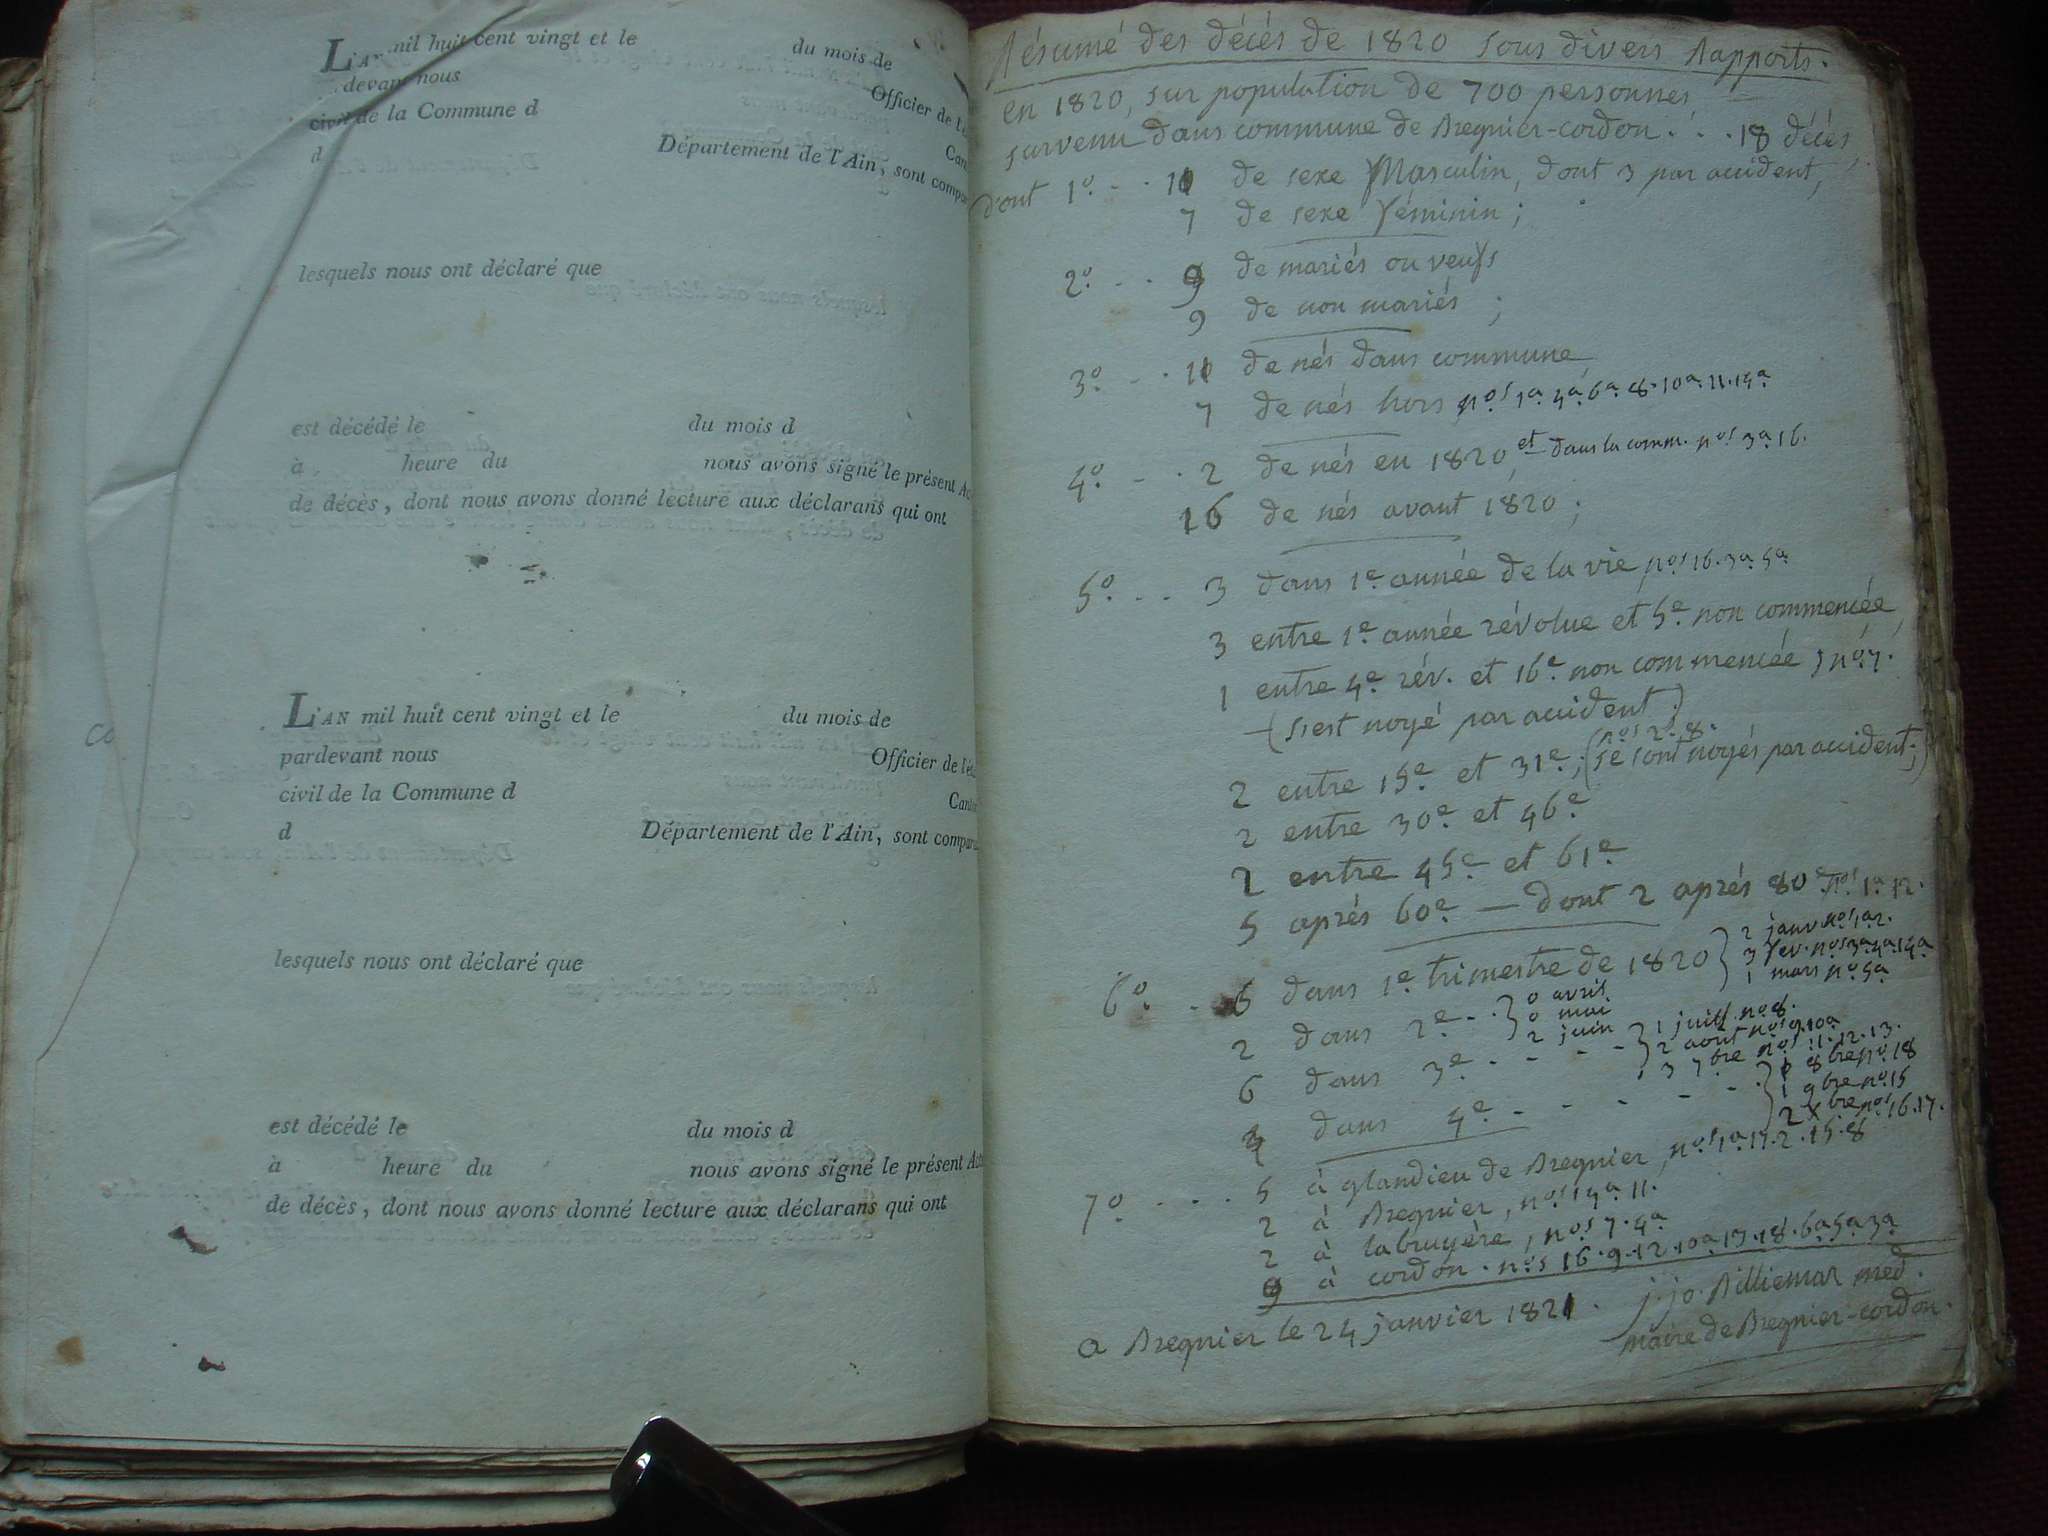 L'AN mil huit cent vingt et le du mois de
devant nous Officier de l'é
civil de la Commune d Can
d Département de l'Ain, sont compar
lesquels nous ont déclaré que
est décédé le du mois d
à heure du nous avons signé le présent Ac
de décès, dont nous avons donné lecture aux déclarans qui ont
L'AN mil huit cent vingt et le du mois de
pardevant nous Officier de l'é
civil de la Commune d Can
d Département de l'Ain, sont compar
lesquels nous ont déclaré que
est décédé le du mois d
à heure du nous avons signé le présent Act
de décès, dont nous avons donné lecture aux déclarans qui ont
Résumé des décés de 1820 sous divers Rapports.
en 1820, sur population de 700 personnes
survenu dans commune de Bregnier-cordon . . . 18 décés,
dont 1º. . . 11 de sexe Masculin, dont 3 par accident,
7 de sexe féminin;
2º. . . 9 de mariés ou veufs
9 de non mariés;
3º. . . 11 de nés dans commune
7 de nés hors nos 1a. 4a. 6a. 8. 10a. 11. 14a
4º. . . 2 de nés en 1820, et dans la comm. nos 3a. 16.
16 de nés avant 1820;
5º. . . 3 dans 1e. année de la vie, nos 16. 3a. 5a
3 entre 1e. année révolue et 5e. non commencée,
1 entre 4e. rév. et 16e. non commencée, no. 7.
(s'est noyé par accident.)
nos 2. 8.
2 entre 15e. et 31e.; (se sont noyés par accident;)
2 entre 30e. et 46e.
2 entre 45e. et 61e.
5 après 60e. — dont 2 après 80e. nos 1a. 12.
6º. . . 6 dans 1e. trimestre de 1820 } 2 janv. nos 1a. 2.
3 fev. nos 3a. 4a. 14a
1 mars no. 5a
2 dans 2e. . . } 0 avril
0 mai
2 juin
6 dans 3e. - - - - } 1 juill. no. 8.
2 aout nos 9. 10a
3 7bre nos 11. 12. 13.
4 dans 4e. - - - - - } 1 8bre no. 18
1 9bre no. 15
2 Xbre nos 16. 17.
7º. . . . 5 à glandieu de Bregnier, nos 1a. 17. 2. 15. 8
2 à Bregnier, nos 14a. 11.
2 à labruyère, nos 7. 4a
9 à cordon. nos 16. 9. 12. 10a. 13. 18. 6a. 5a. 3a
a Bregnier le 24 janvier 1821. j. jo. Billiemaz med.
maire de Bregnier-cordon.